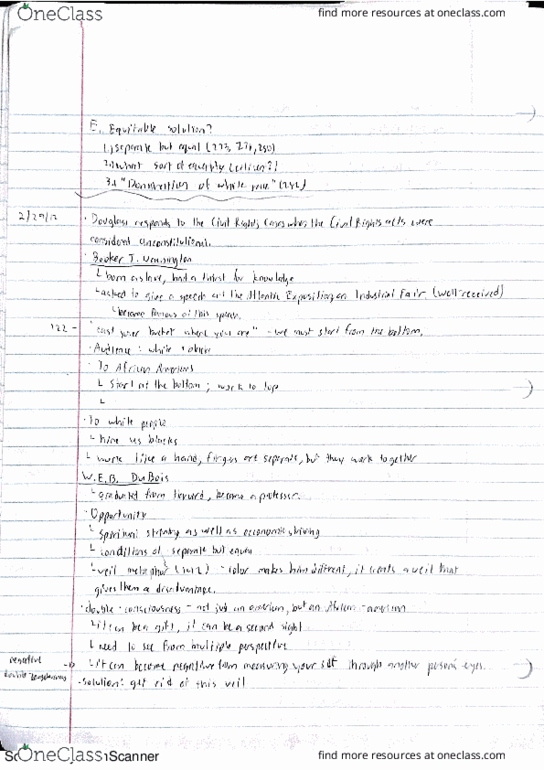 OneClass
find more resources at oneclass.com
E. Equitable solution?
1.) separate but equal
2.) what sort of equality
3.) "Domination of white race" (242)
2/29/12
· Douglass responds to the Civil Rights Cases when the Civil Rights acts were
considered unconstitutional.
· Booker T. Washington
└ born a slave, had a thirst for knowledge
└ asked to give a speech at the Atlantic Exposition an Industrial Fair (well-received)
└ became famous of this speech.
122 -
"cast your bucket where you are" - we must start from the bottom.
· Audience: white +
· To African Americans
└ start at the bottom; work to top
└
· To white people
└ hire us blacks
└ work like a hand, fingers are separate, but they work together
W.E.B. DuBois
└ graduated from Harvard, became a professor.
· Opportunity
└ spiritual striving as well as economic striving
└ conditions of separate but equal
└ veil metaphor - color makes him different, it creates a veil that
gives them a disadvantage.
· double-consciousness - not just an american, but an African-american
└ it can be a gift, it can be a second sight
└ need to see from multiple perspective
negative
double-consciousness
└ it can become negative from measuring your self through another person's eyes.
· solution: get rid of this veil
OneClass
Scanner
find more resources at oneclass.com